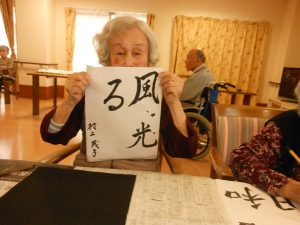 風光
る
村上
和